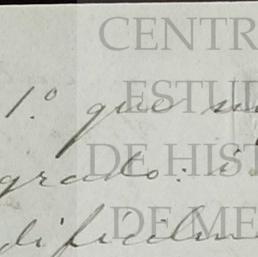 1.º que
grado:
dificilm
CENTR
ESTUD
DE HIST
DE ME